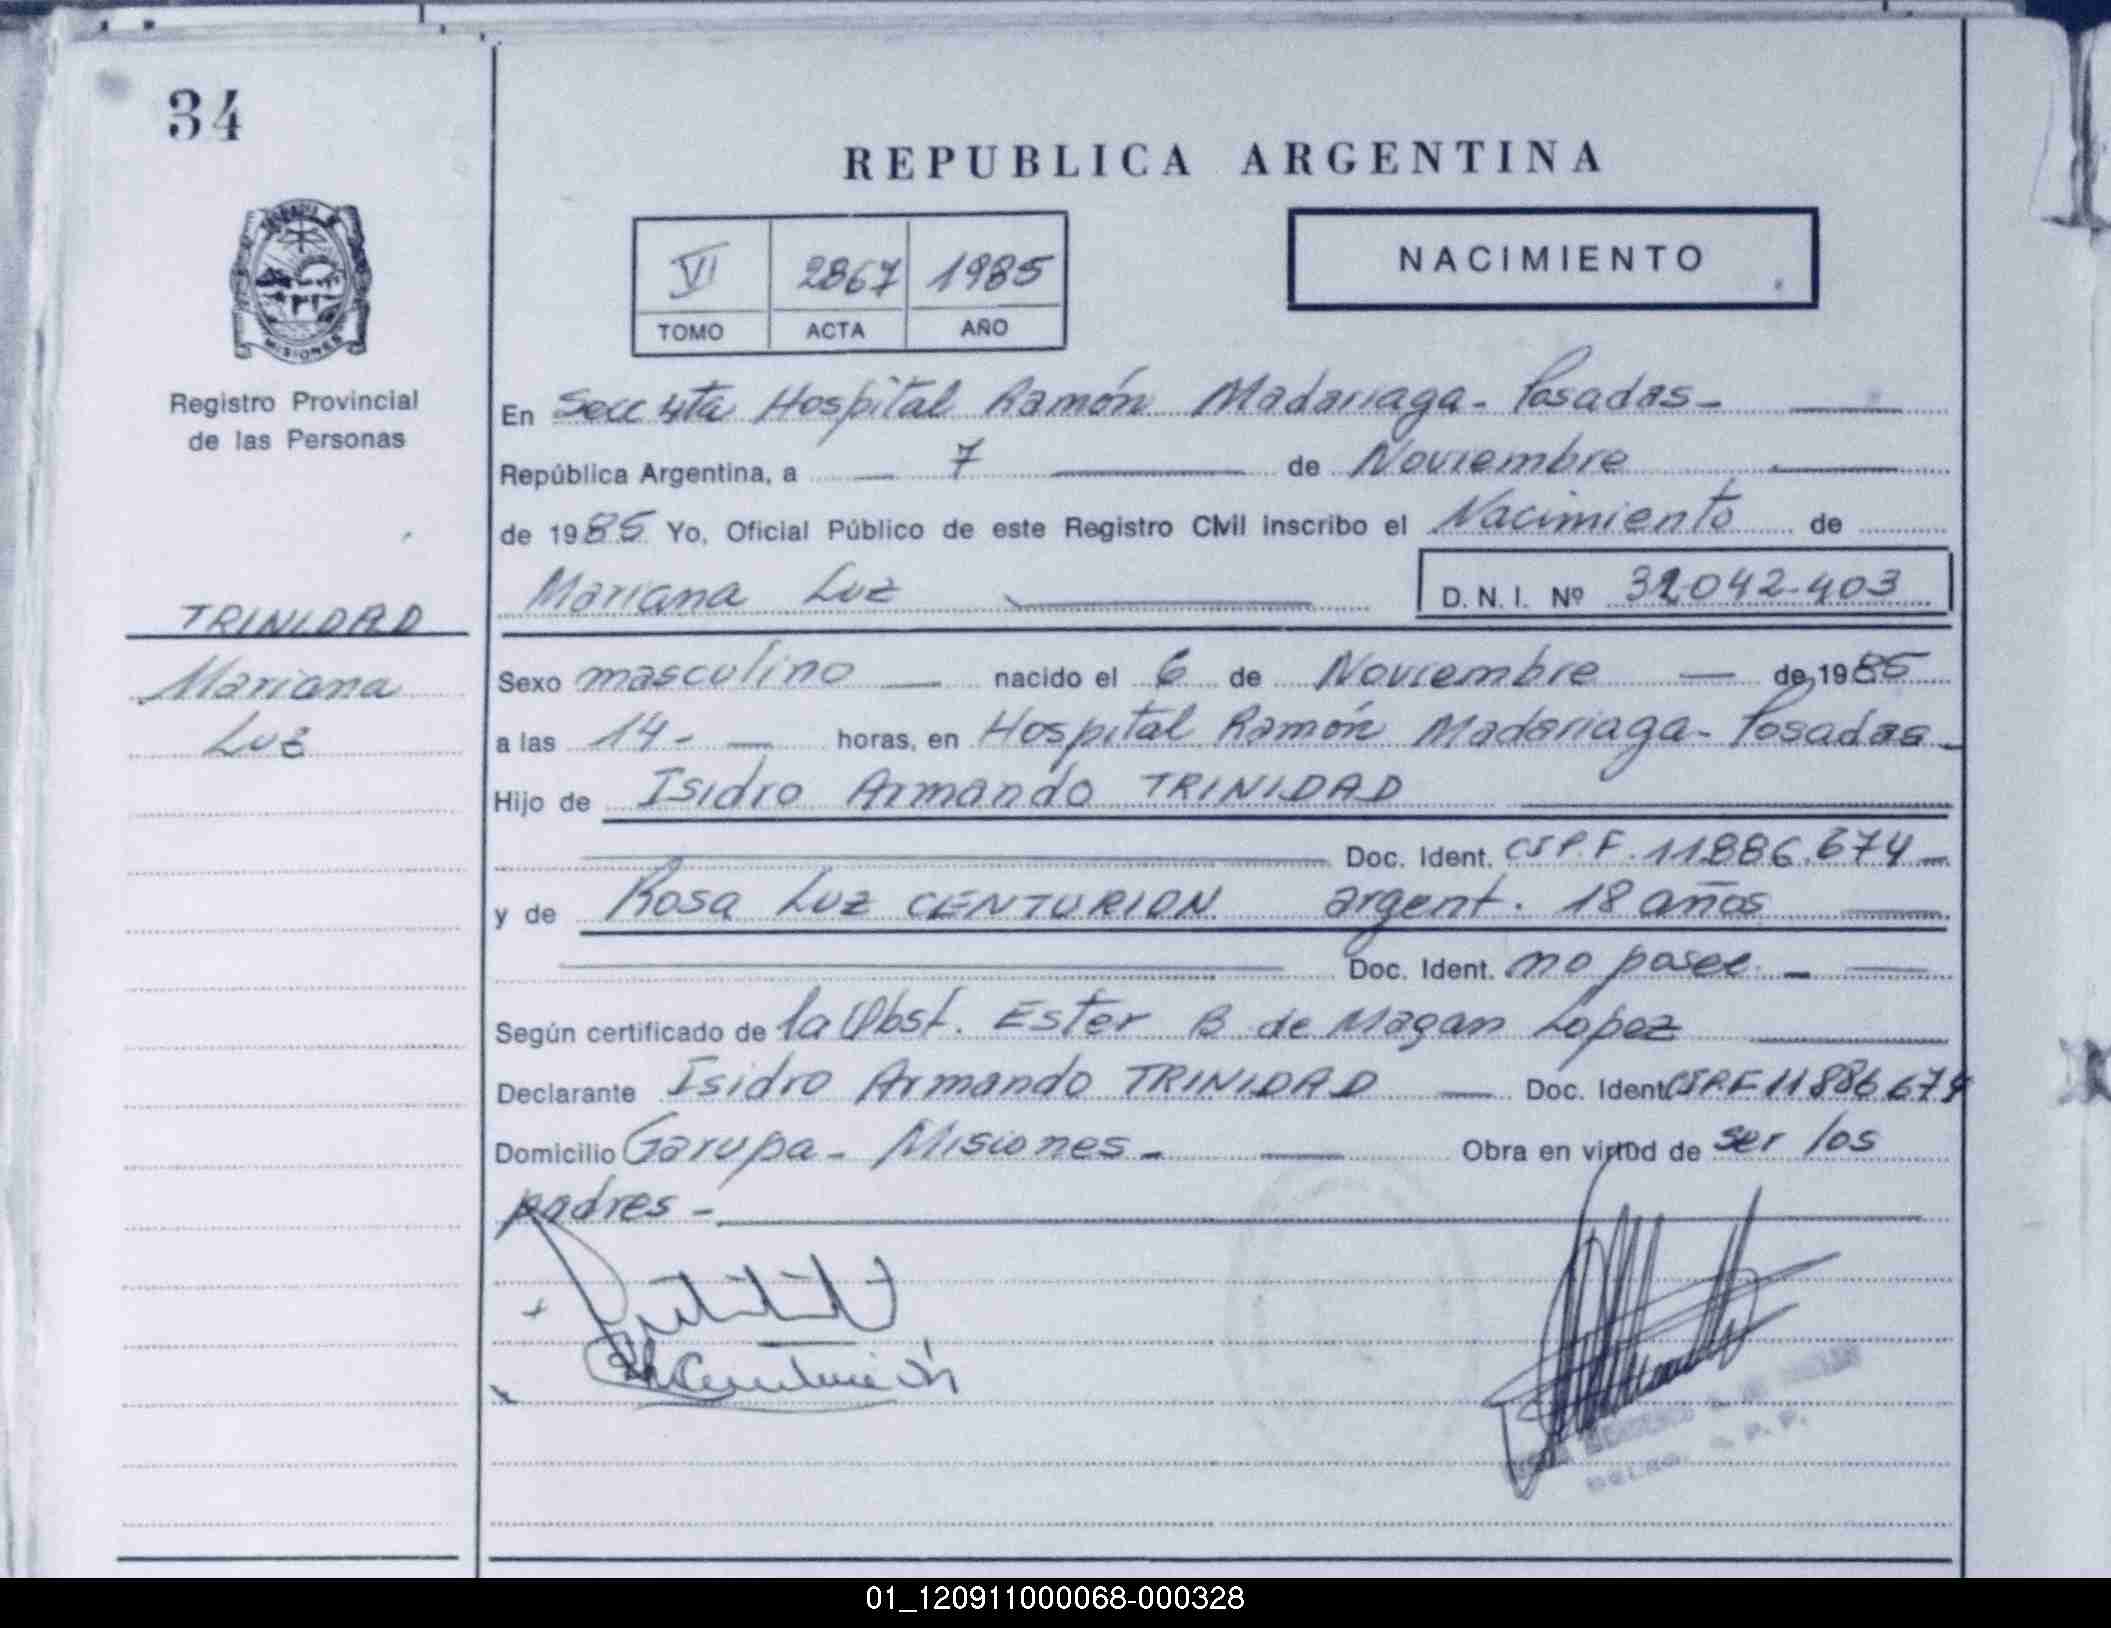 34
REPUBLICA ARGENTINA
NACIMIENTO
VI 2867 1985
TOMO ACTA AÑO
MISIONES
Registro Provincial
de las Personas
TRINIDAD
Mariana
Luz
En Secc 4ta Hospital Ramón Madariaga - Posadas -
República Argentina, a 7 de Noviembre
de 1985 Yo, Oficial Público de este Registro Civil inscribo el Nacimiento de
Mariana Luz D. N. I. Nº 32.042.403
Sexo masculino nacido el 6 de Noviembre de 1985
a las 14 - horas, en Hospital Ramón Madariaga - Posadas -
Hijo de Isidro Armando TRINIDAD
Doc. Ident. CSP.F. 11.886.674
y de Rosa Luz CENTURION argent. 18 años
Doc. Ident. no posee. -
Según certificado de la Obst. Ester B de Magan Lopez
Declarante Isidro Armando TRINIDAD Doc. Ident. CSP.F 11886674
Domicilio Garupa - Misiones - Obra en virtud de ser los
padres -
01_120911000068-000328